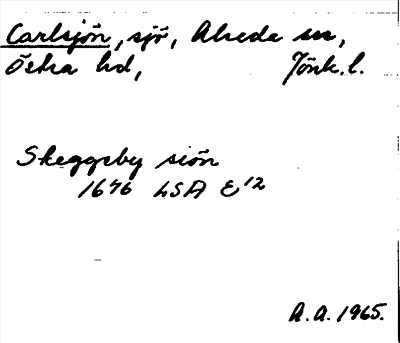 Carlsjön, sjö, Alseda sn,
Östra hd, Jönk. l.
Skeggeby siön
1646 LSA E12
A.A. 1965.